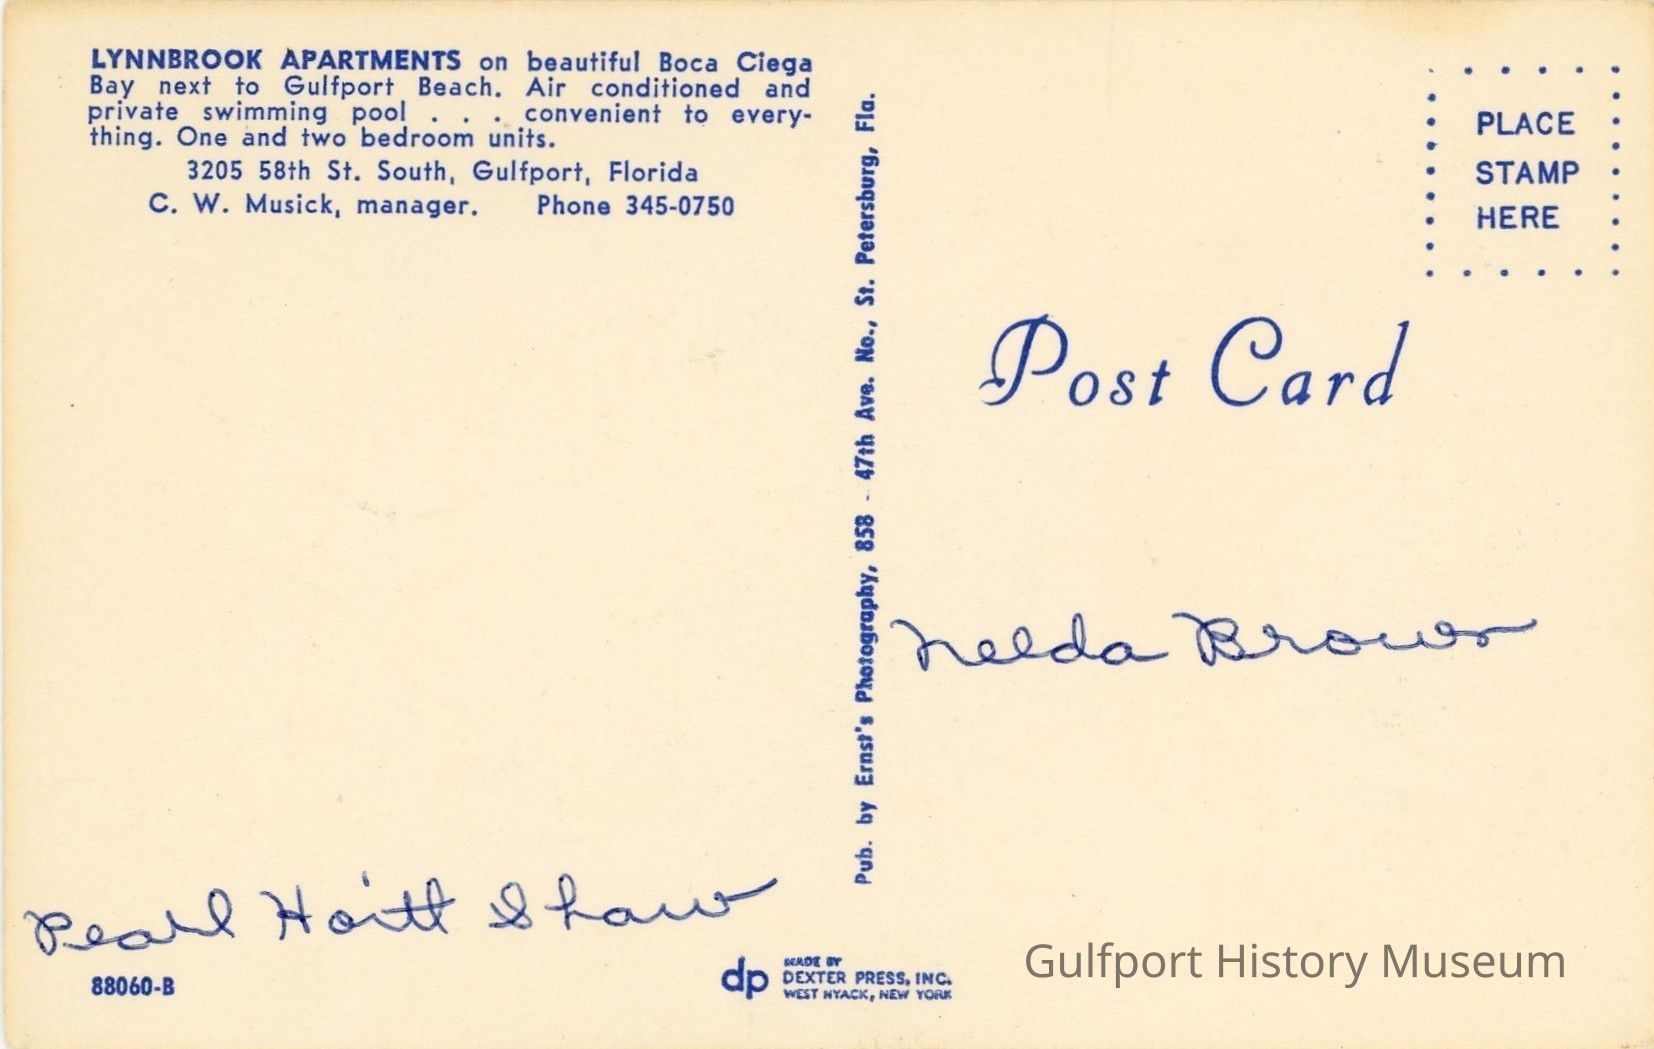 LYNNBROOK APARTMENTS on beautiful Boca Ciega
Bay next to Gulfport Beach. Air conditioned and
private swimming pool . . . convenient to every-
thing. One and two bedroom units.
3205 58th St. South, Gulfport, Florida
C. W. Musick, manager. Phone 345-0750
Pearl Hoitt Shaw
88060-B
Pub. by Ernst's Photography, 858 - 47th Ave. No., St. Petersburg, Fla.
dp
MADE BY
DEXTER PRESS, INC.
WEST NYACK, NEW YORK
PLACE
STAMP
HERE
Post Card
Nelda Brown
Gulfport History Museum